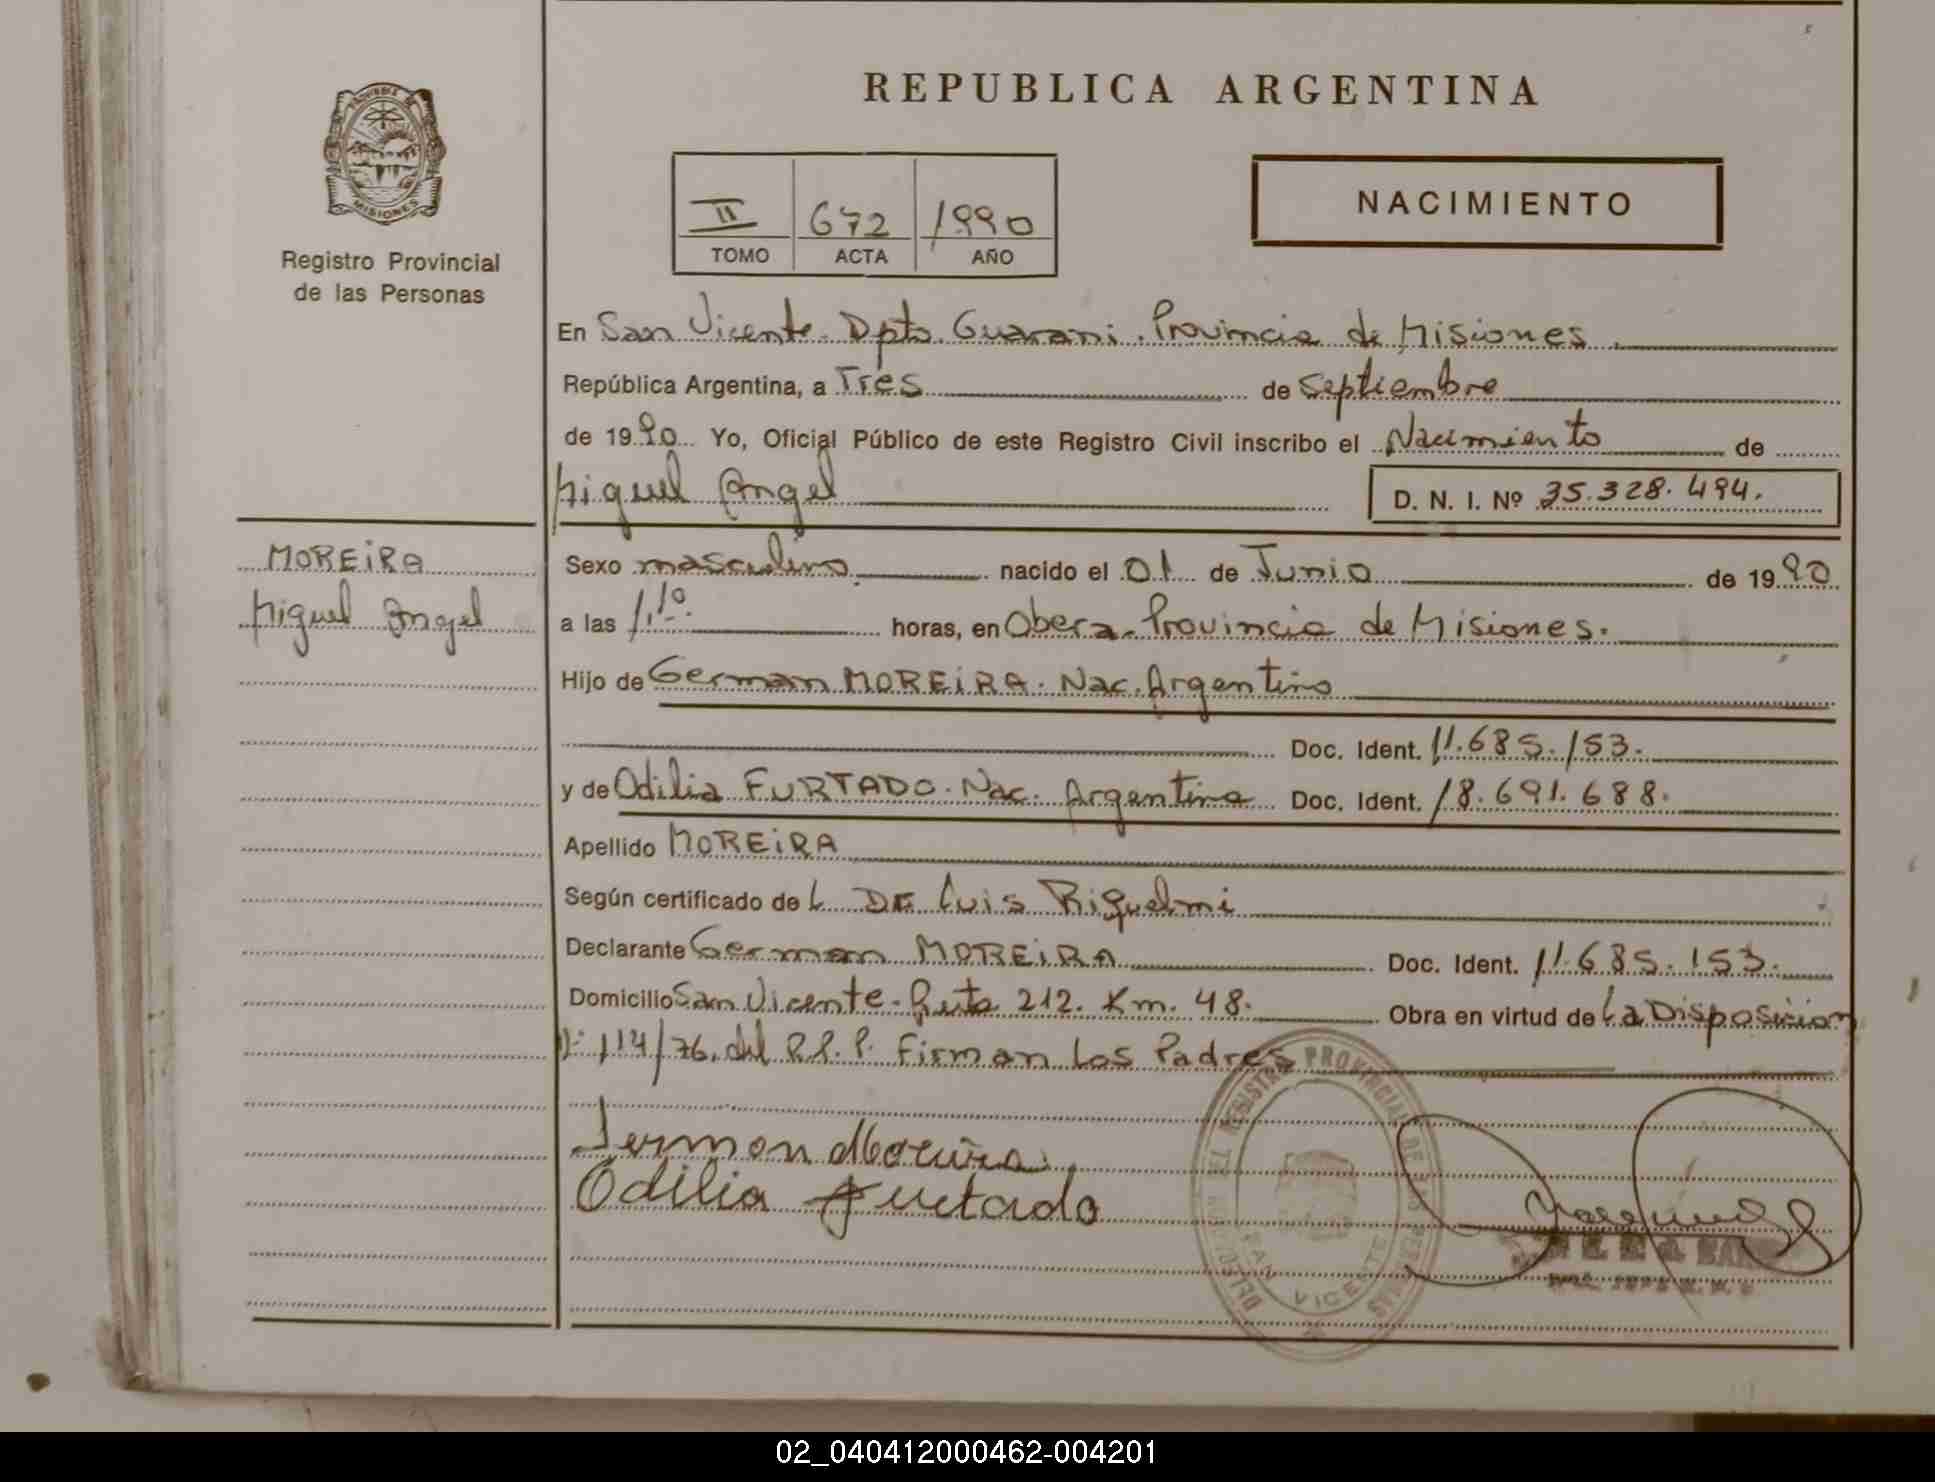 REPUBLICA ARGENTINA
PROVINCIA DE MISIONES
Registro Provincial
de las Personas
II 672 1990
TOMO ACTA AÑO
NACIMIENTO
En San Vicente. Dpto. Guarani. Provincia de Misiones.
República Argentina, a Tres de Septiembre
de 1990 Yo, Oficial Público de este Registro Civil inscribo el Nacimiento de
Miguel Angel D. N. I. Nº 35.328.494.
MOREIRA
Miguel Angel
Sexo masculino. nacido el 01 de Junio de 1990
a las horas, en Obera. Provincia de Misiones.
Hijo de German MOREIRA. Nac. Argentino
Doc. Ident. 11.685.153.
y de Odilia FURTADO. Nac. Argentina Doc. Ident. 18.691.688.
Apellido MOREIRA
Según certificado de L. DE Luis Riquelmi
Declarante German MOREIRA Doc. Ident. 11.685.153.
Domicilio San Vicente. Ruta 212. Km. 48. Obra en virtud de La Disposicion
Nº 114/76. del R.P.P. Firman Los Padres
German Moreira
Odilia Furtado
DEL REGISTRO PROVINCIAL DE LAS PERSONAS
SAN VICENTE
02_040412000462-004201